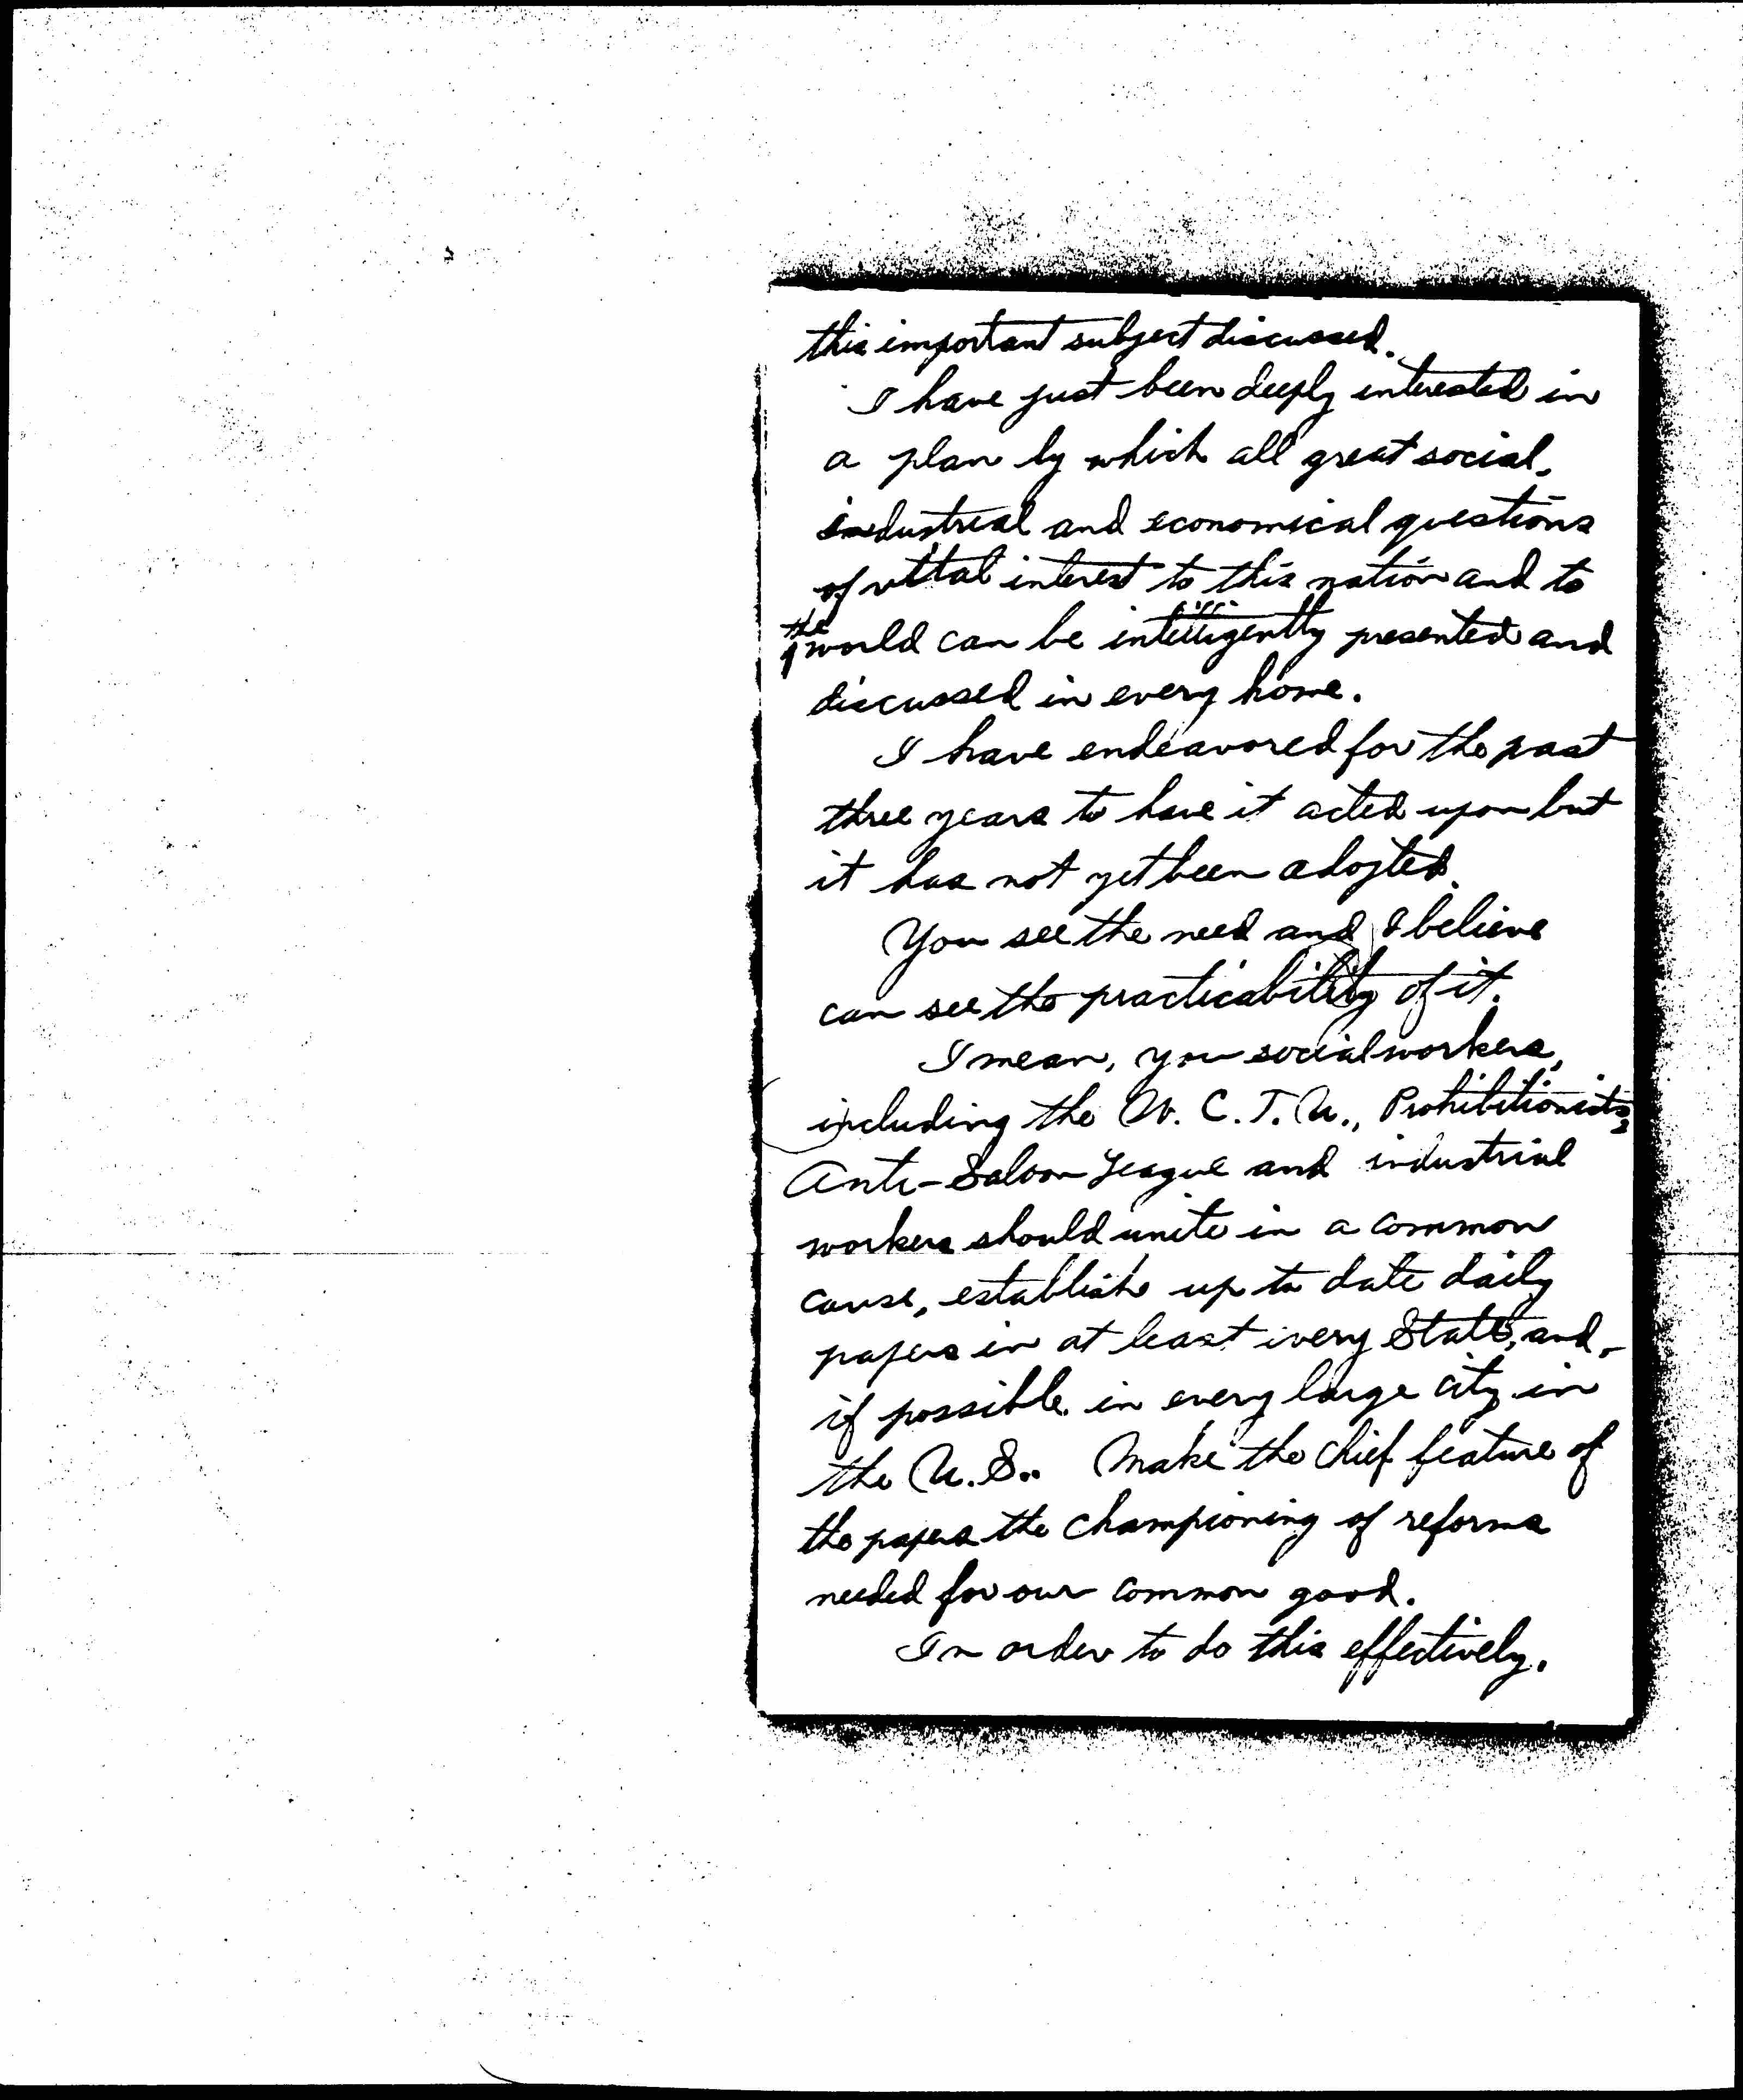 this important subject discussed.
I have just been deeply interested in
a plan by which all great social,
industrial and economical questions
of vital interest to this nation and to
the world can be intelligently presented and
discussed in every home.
I have endeavored for the past
three years to have it acted upon but
it has not yet been adopted.
You see the need and I believe
can see the practicability of it.
I mean, you social workers,
including the W. C. T. U., Prohibitionists,
Anti-Saloon League and industrial
workers should unite in a common
cause, establish up to date daily
papers in at least every State, and,
if possible in every large city in
the U. S.. Make the chief feature of
the papers the championing of reforms
needed for our common good.
In order to do this effectively,